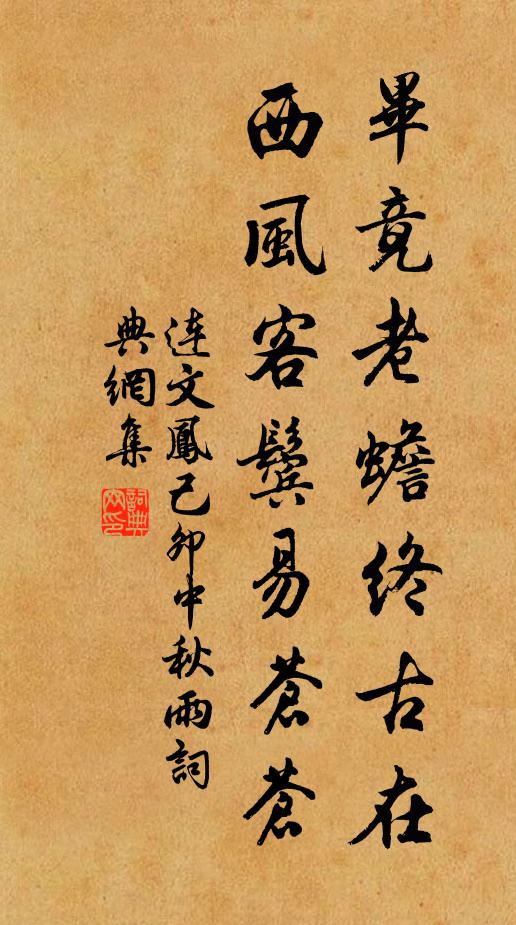 畢竟老蟾終古在
西風客鬢易蒼蒼
連文鳳己卯中秋雨詞
典網集
詞典网印